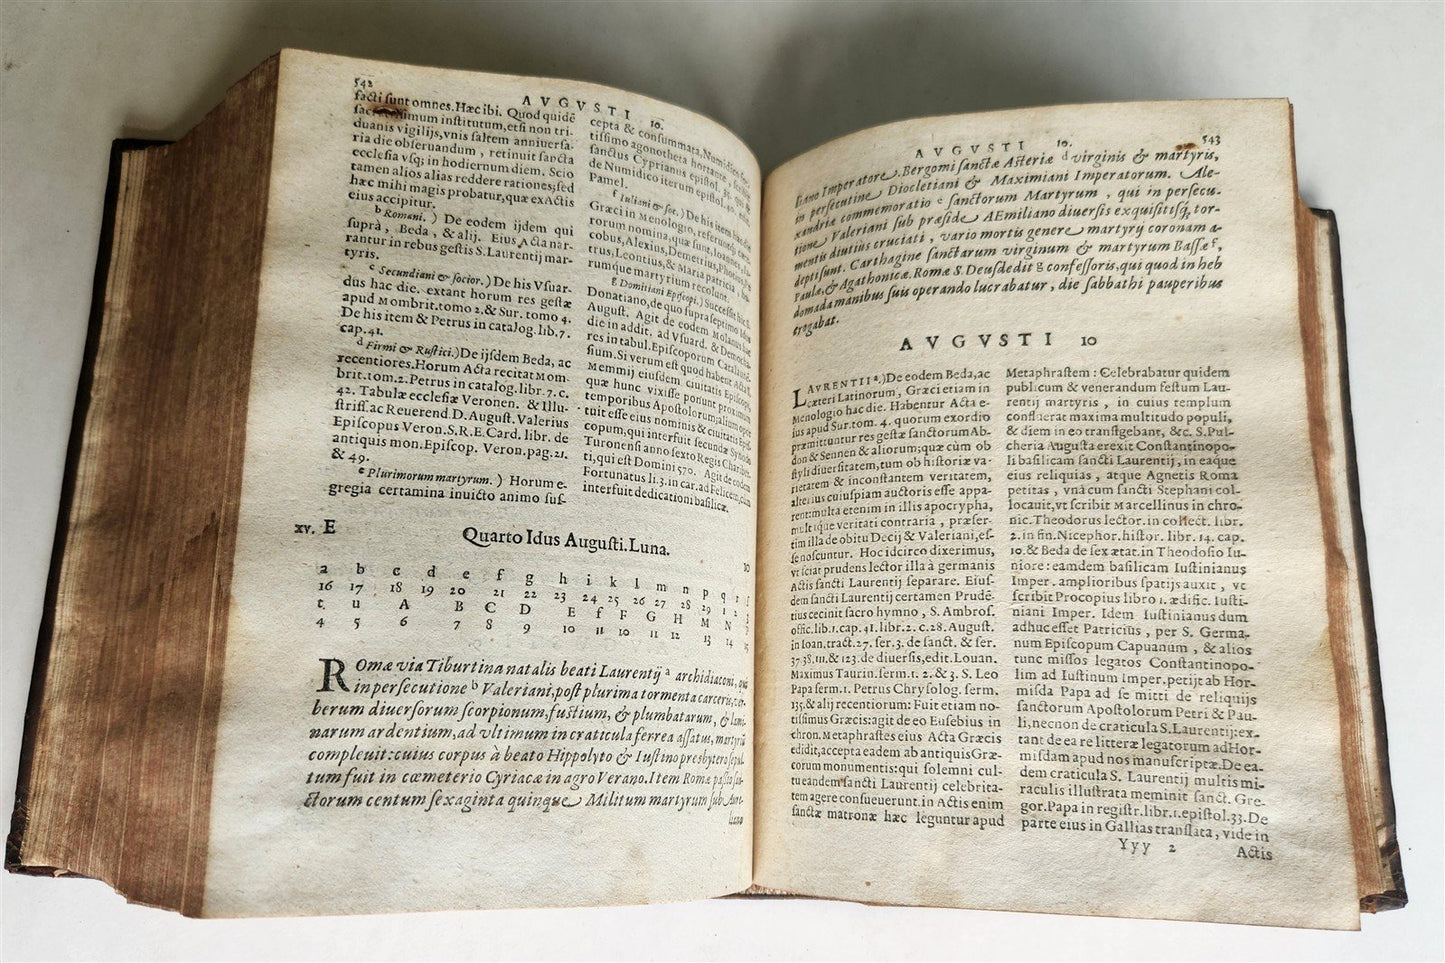 542
AVGVSTI 10.
facti sunt omnes. Hæc ibi. Quod quidē
sac imum institutum, etsi non tri-
duanis vigilijs, vnis saltem anniuersa-
ria die obseruandum, retinuit sancta
ecclesia vsq; in hodiernum diem. Scio
tamen alios alias reddere rationes; sed
hæc mihi magis probatur, quæ ex Actis
eius accipitur.
b Romani. ) De eodem ijdem qui
suprà, Beda, & alij. Eius Acta nar-
rantur in rebus gestis S. Laurentij mar-
tyris.
c Secundiani & socior. ) De his Vsuar-
dus hac die. extant horum res gestæ
apud Mombrit. tomo 2. & Sur. tomo 4.
De his item & Petrus in catalog. lib. 7.
cap. 41.
d Firmi & Rustici. ) De ijsdem Beda, ac
recentiores. Horum Acta recitat Mom-
brit. tom. 2. Petrus in catalog. lib. 7. c.
42. Tabulæ ecclesiæ Veronen. & Illu-
striss. ac Reuerend. D. August. Valerius
Episcopus Veron. S. R. E. Card. libr. de
antiquis mon. Episcop. Veron. pag. 21.
& 49.
e Plurimorum martyrum. ) Horum e-
gregia certamina inuicto animo sus-
cepta & consummata, Numidico
tissimo agonotheta hortante,
sanctus Cyprianus epistol. 35. qui &
de Numidico iterum epistol. 40.
Pamel.
Iuliani & soc. ) De his item hac die
Græci in Menologio, referuntque
rorum nomina, quæ sunt, Ioannes, Ia-
cobus, Alexius, Demetrius, Photius, Pe-
trus, Leontius, & Maria patricia,
rumque martyrium recolunt.
g Domitiani Episcopi. ) Successit hic S.
Donatiano, de quo supra septimo Idus
August. Agit de eodem Molanus hac
die in addit. ad Vsuard. & Democha-
res in tabul. Episcoporum Catalaunē-
sium. Si verum est quod habent Acta S.
Memmij eiusdem ciuitatis Episcopi,
quæ hunc vixisse ponunt proximum
temporibus Apostolorum; alium opor-
tuit esse eius nominis & ciuitatis Epis-
copum, qui interfuit secundæ Synodo
Turonensi anno sexto Regis Chariber-
ti, qui est Domini 570. Agit de eodem
Fortunatus li. 3. in car. ad Felicem, cum
interfuit dedicationi basilicæ.
xv. E Quarto Idus Augusti. Luna. 10
a b c d e f g h i k l m n p q r s
16 17 18 19 20 21 22 23 24 25 26 27 28 29 1 2 3
t u A B C D E f F G H M N P
4 5 6 7 8 9 10 11 10 11 12 13 14 15
ROmæ via Tiburtina natalis beati Laurentij a archidiaconi, qui
in persecutione b Valeriani, post plurima tormenta carceris, ver-
berum diuersorum scorpionum, fustium, & plumbatarum, & lami-
narum ardentium, ad vltimum in craticula ferrea assatus, martyriũ
compleuit: cuius corpus à beato Hippolyto & Iustino presbytero sepul-
tum fuit in cœmeterio Cyriacæ in agro Verano. Item Romæ passio san-
ctorum centum sexaginta quinque Militum martyrum sub Aure-
liano
AVGVSTI 10. 543
liano Imperatore. Bergomi sanctæ Asteriæ d virginis & martyris,
in persecutine Diocletiani & Maximiani Imperatorum. Ale-
xandriæ commemoratio e sanctorum Martyrum, qui in persecu-
tione Valeriani sub præside AEmiliano diuersis exquisitisq; tor-
mentis diutius cruciati, vario mortis genere martyrij coronam a-
depti sunt. Carthagine sanctarum virginum & martyrum Bassæ f,
Paulæ, & Agathonicæ. Romæ S. Deusdedit g confessoris, qui quod in heb
domada manibus suis operando lucrabatur, die sabbathi pauperibus
erogabat.
AVGVSTI 10
LAVRENTII a. ) De eodem Beda, ac
cæteri Latinorum, Græci etiam in
Menologio hac die. Habentur Acta e-
ius apud Sur. tom. 4. quorum exordio
præmittuntur res gestæ sanctorum Ab-
don & Sennen & aliorum; quæ cùm ob
styli diuersitatem, tum ob historiæ va-
rietatem & inconstantem veritatem,
alterius cuiuspiam auctoris esse appa-
rent: multa etenim in illis apocrypha,
multique veritati contraria, præser-
tim illa de obitu Decij & Valeriani, es-
se noscuntur. Hoc idcirco dixerimus,
vt sciat prudens lector illa à germanis
Actis sancti Laurentij separare. Eius-
dem sancti Laurentij certamen Prudē-
tius cecinit sacro hymno, S. Ambros.
offic. lib. 1. cap. 41. libr. 2. c. 28. August.
in Ioan. tract. 27. ser. 3. de sanct. & ser.
37. 38. 111. & 123. de diuersis, edit. Louan.
Maximus Taurin. serm. 1. 2. & 3. S. Leo
Papa serm. 1. Petrus Chrysolog. serm.
135. & alij recentiorum: Fuit etiam no-
tissimus Græcis: agit de eo Eusebius in
chron. Metaphrastes eius Acta Græcis
edidit, accepta eadem ab antiquis Græ-
corum monumentis: qui solemni cul-
tu eandem sancti Laurentij celebrita-
tem agere consueuerunt. in Actis enim
sanctæ matronæ hæc leguntur apud
Metaphrastem: Celebrabatur quidem
publicum & venerandum festum Lau-
rentij martyris, in cuius templum
confluerat maxima multitudo populi,
& diem in eo transigebant, &c. S. Pul-
cheria Augusta erexit Constantinopo-
li basilicam sancti Laurentij, in eaque
eius reliquias, atque Agnetis Roma
petitas, vnà cum sancti Stephani col-
locauit, vt scribit Marcellinus in chro-
nic. Theodorus lector. in collect. libr.
2. in fin. Nicephor. histor. libr. 14. cap.
10. & Beda de sex ætat. in Theodosio Iu-
niore: eamdem basilicam Iustinianus
Imper. amplioribus spatijs auxit, vt
scribit Procopius libro 1. ædific. Iusti-
niani Imper. Idem Iustinianus dum
adhuc esset Patricius, per S. Germa-
num Episcopum Capuanum, & alios
tunc missos legatos Constantinopo-
lim ad Iustinum Imper. petijt ab Hor-
misda Papa ad se mitti de reliquijs
sanctorum Apostolorum Petri & Pau-
li, necnon de craticula S. Laurentij: ex-
tant de ea re litteræ legatorum ad Hor-
misdam apud nos manuscriptæ. De ea-
dem craticula S. Laurentij multis mi-
raculis illustrata meminit sanct. Gre-
gor. Papa in registr. libr. 1. epistol. 33. De
parte eius in Gallias translata, vide in
Yyy 2 Actis